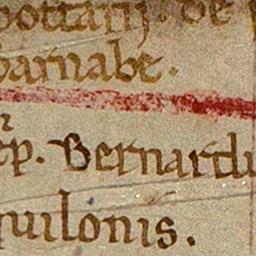 pottarij. de
barnabe.
p. Bernardu
quilonis.